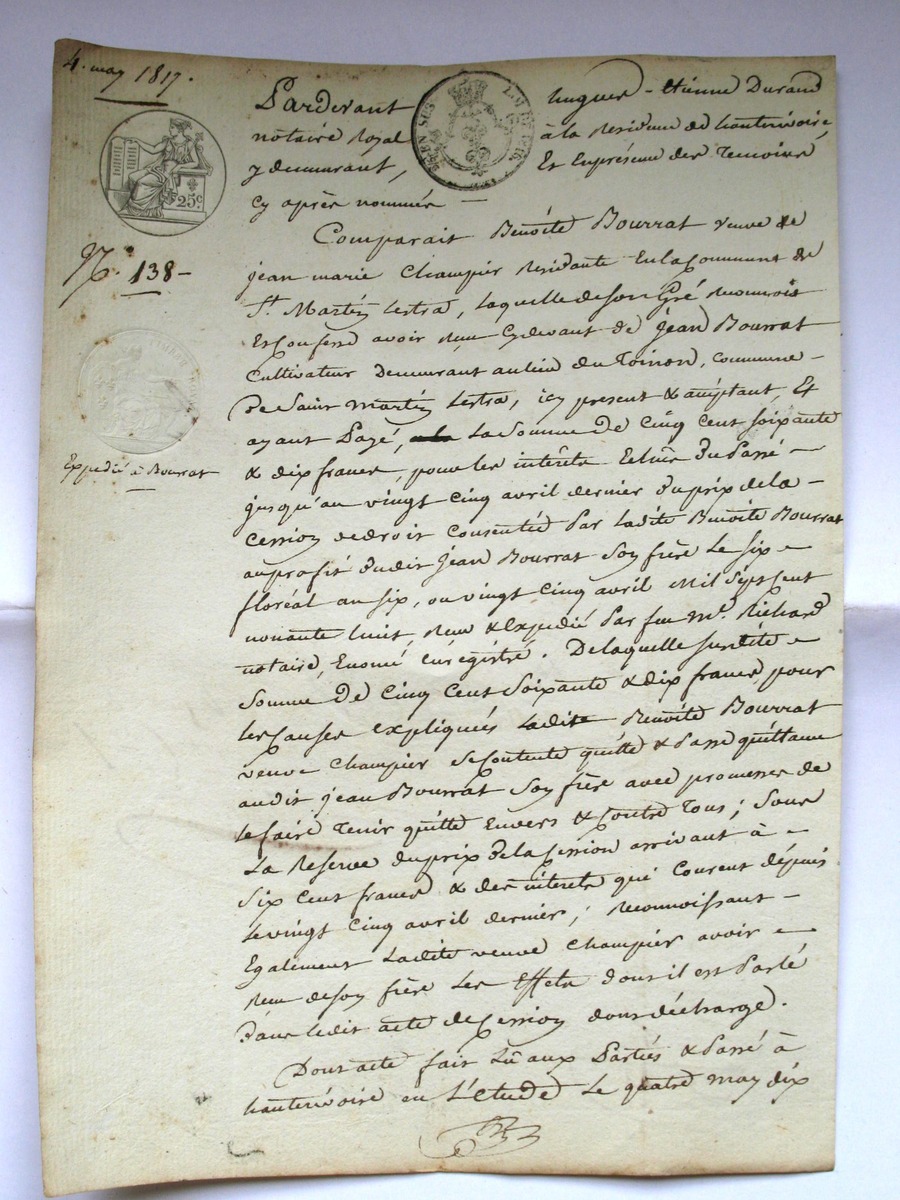 4. may 1817.
25c
N.° 138 -
Expedié à Bourrat
Pardevant hugues - etienne Durand
notaire Royal à la Residence de hauterivoire
y demeurant, Et Enpresence des Temoins
cy après nommés -
Comparait Benoite Bourrat veuve de
jean marie Champier Residante En la Commune de
St. Martin Lestra, Laquelle de son Gré Reconnoit
Et Confesse avoir Reçu Cydevant de jean Bourrat
Cultivateur Demeurant au lieu du Toinon, commune -
de Saint martin Lestra, icy present & acceptant, Et
ayant Payé, La Somme De Cinq Cent soixante
& dix francs, pour les interets Echus du Passé -
jusqu'au vingt cinq avril dernier du prix de la -
Cession de droit Consentie Par Ladite Benoite Bourrat
au profit dudit jean Bourrat Son frère Le Six -
floréal an six, ou vingt cinq avril Mil Sept Cent
nonante huit, Reçu & Expedié Par feu Me. Richard
notaire, Enregistré. De laquelle susdite -
Somme de Cinq Cent Soixante & dix francs pour
les causes expliquées Ladite Benoite Bourrat
veuve Champier se Contente quitte & Passe quittance
audit jean Bourrat Son frère avec promesses de
le faire Tenir quitte Envers & Contre Tous; Sous
La Reserve du prix de la Cession arrivant à -
Six Cent francs & des interets qui Courent dépuis
le vingt Cinq avril dernier; Reconnoissant -
Egalement Ladite veuve Champier avoir -
Reçu de son frère Les Effets dont il est Parlé
dans ledit acte de Cession dont décharge.
Dont acte fait Lû aux Parties & Passé à
hauterivoire en L'etude Le quatre may dix